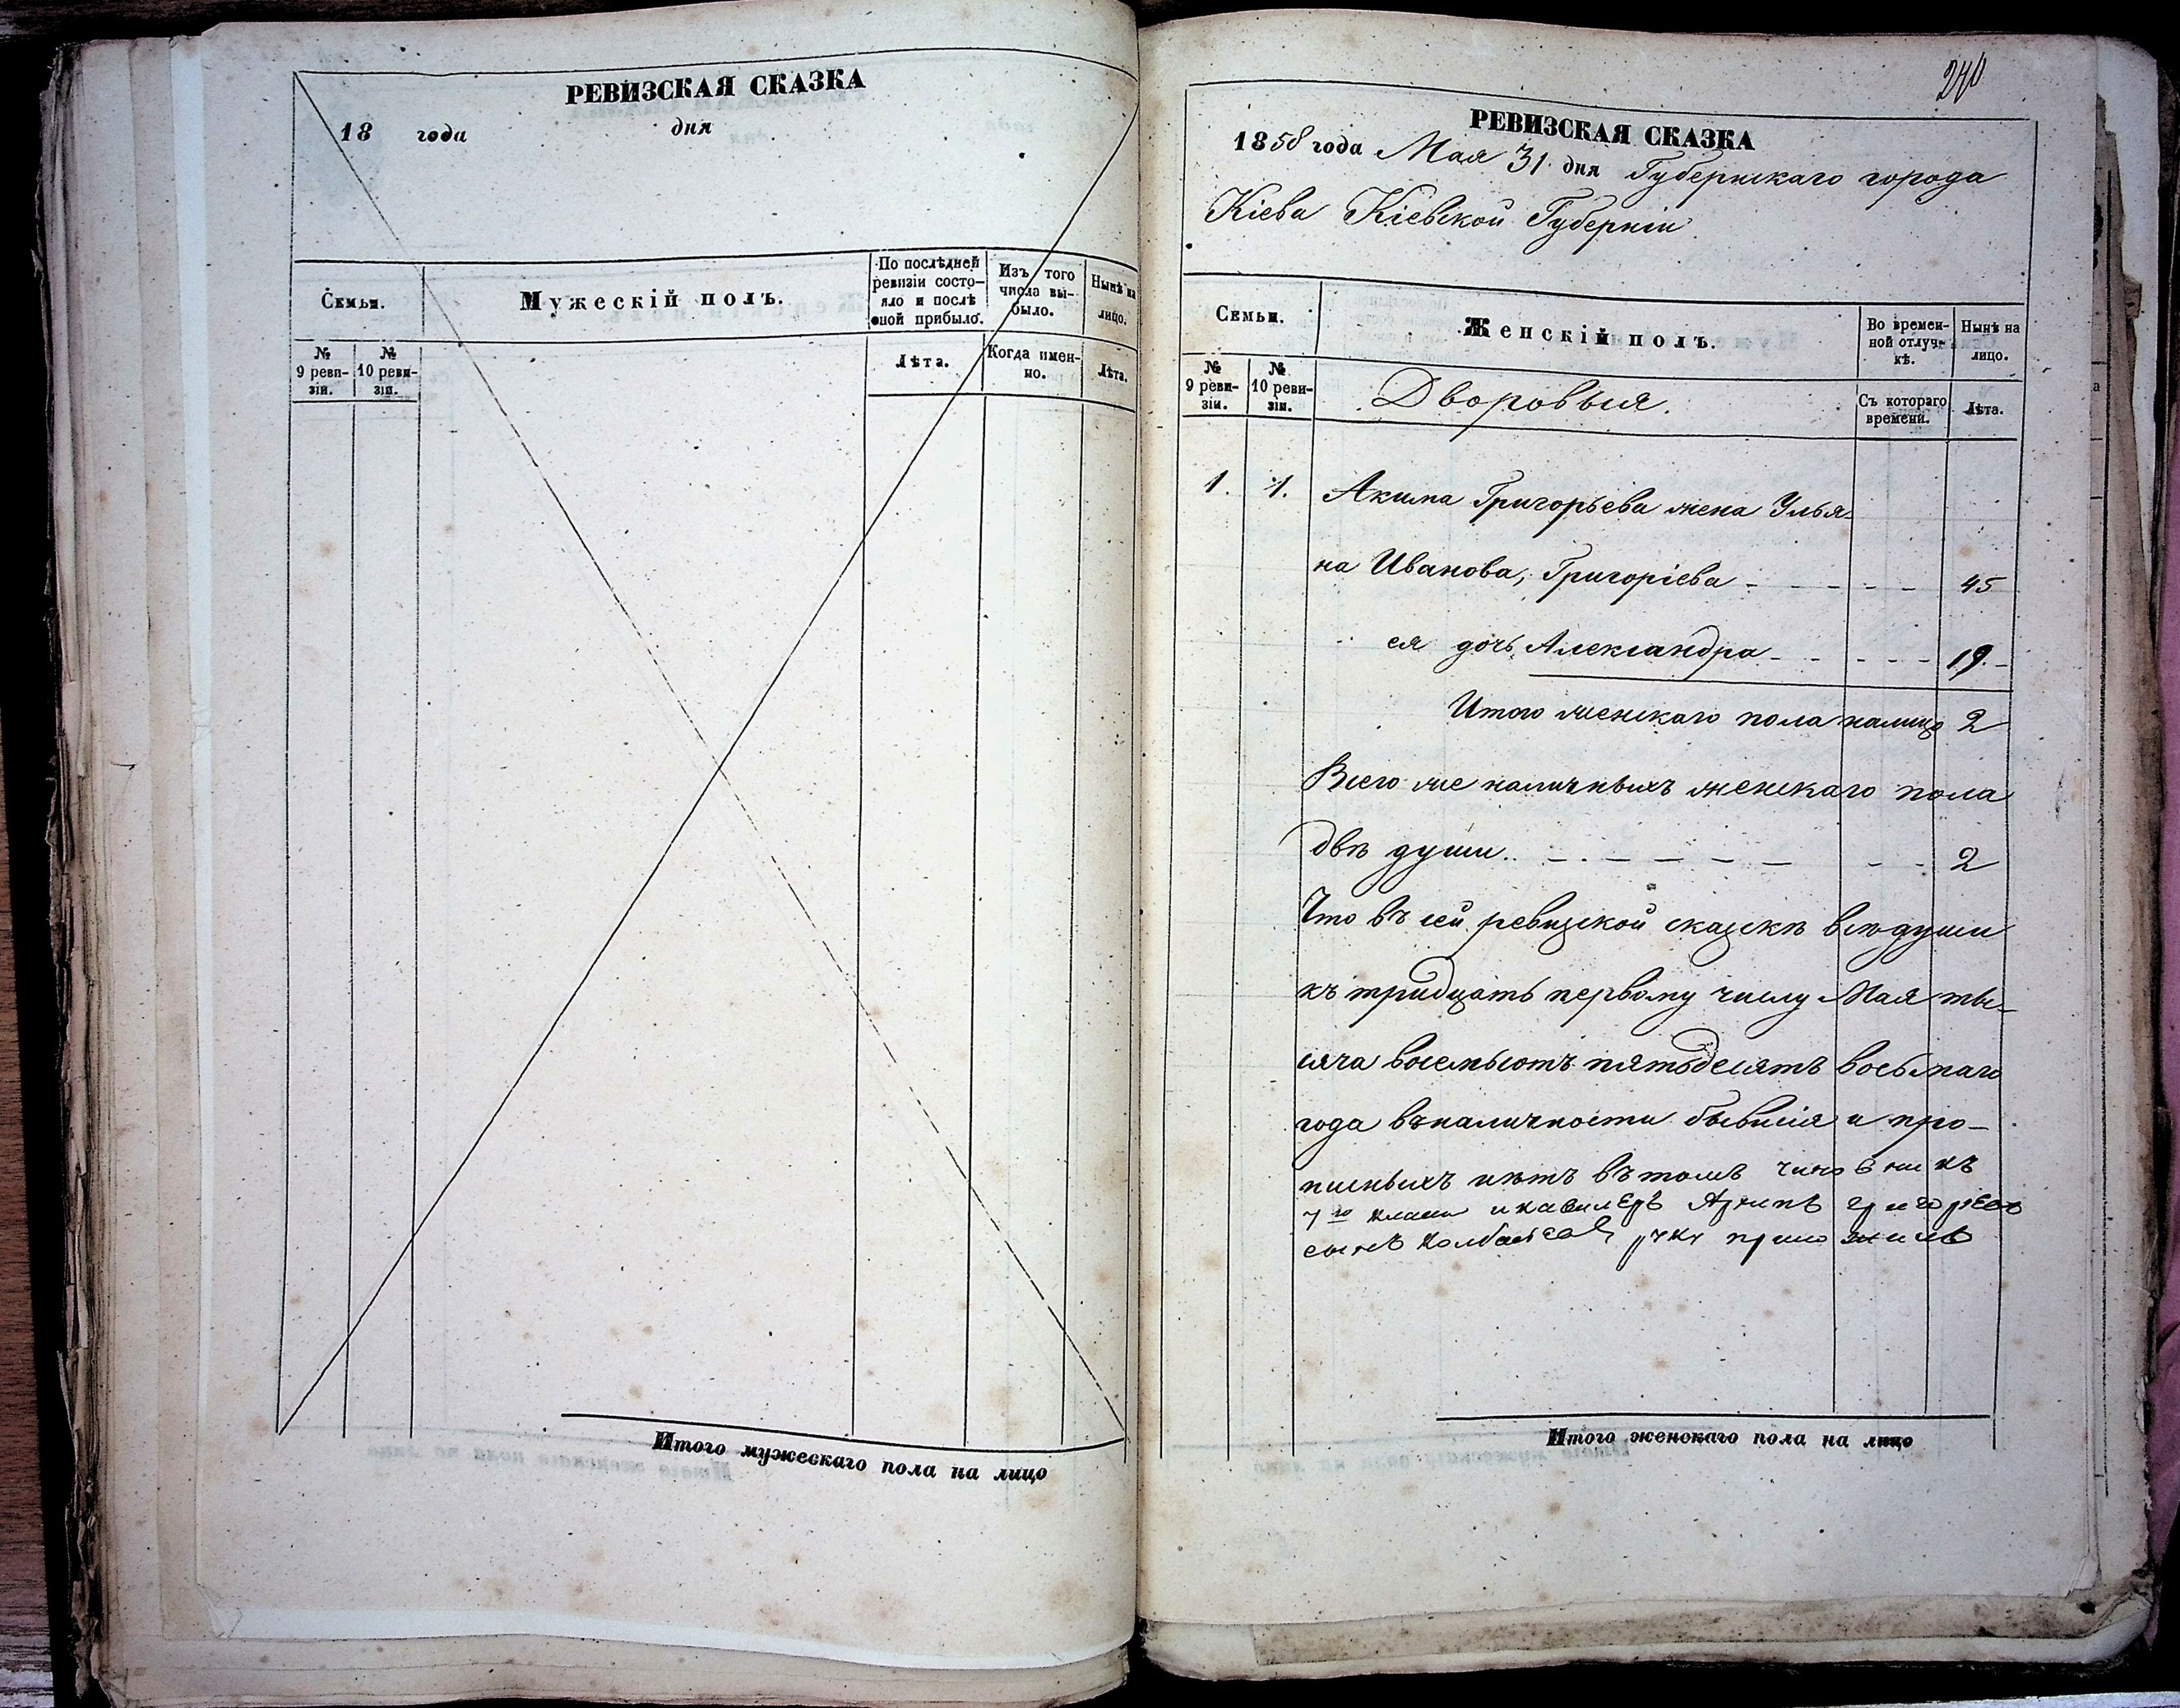 РЕВИЗСКАЯ СКАЗКА
18 года дня
Семьи.
Мужескій полъ.
По послѣдней ревизіи состо-
яло и послѣ оной прибыло.
Изъ того числа вы-
было.
Нынѣ на лицо.
№ 9 реви-
зіи.
№ 10 реви-
зіи.
Лѣта.
Когда имен-
но.
Лѣта.
Итого мужескаго пола на лицо
РЕВИЗСКАЯ СКАЗКА
1858 года Мая 31 дня Губернскаго города
Кіева Кіевской Губерніи
Семьи.
Женскій полъ.
Во времен-
ной отлуч-
кѣ.
Нынѣ на
лицо.
№ 9 реви-
зіи.
№ 10 реви-
зіи.
Дворовыя.
Съ котораго
времени.
Лѣта.
1. 1. Акима Григорьева жена Улья-
на Иванова, Григоріева - - - - - - 45
ея дочь Александра - - - - - - 19.-
Итого женскаго пола налицо 2
Всего же наличныхъ женскаго пола
двѣ души.. - - - - - - - - 2
Что въ сей ревизской сказкѣ всѣ души
къ тридцать первому числу Мая ты-
сяча восемьсотъ пятьдесятъ восьмаго
года въ наличности бывшія и про-
писныхъ нѣтъ въ томъ чиновникъ
7го класса и кавалеръ Архипъ Григорьевъ
сынъ руку приложилъ
Итого женскаго пола на лицо